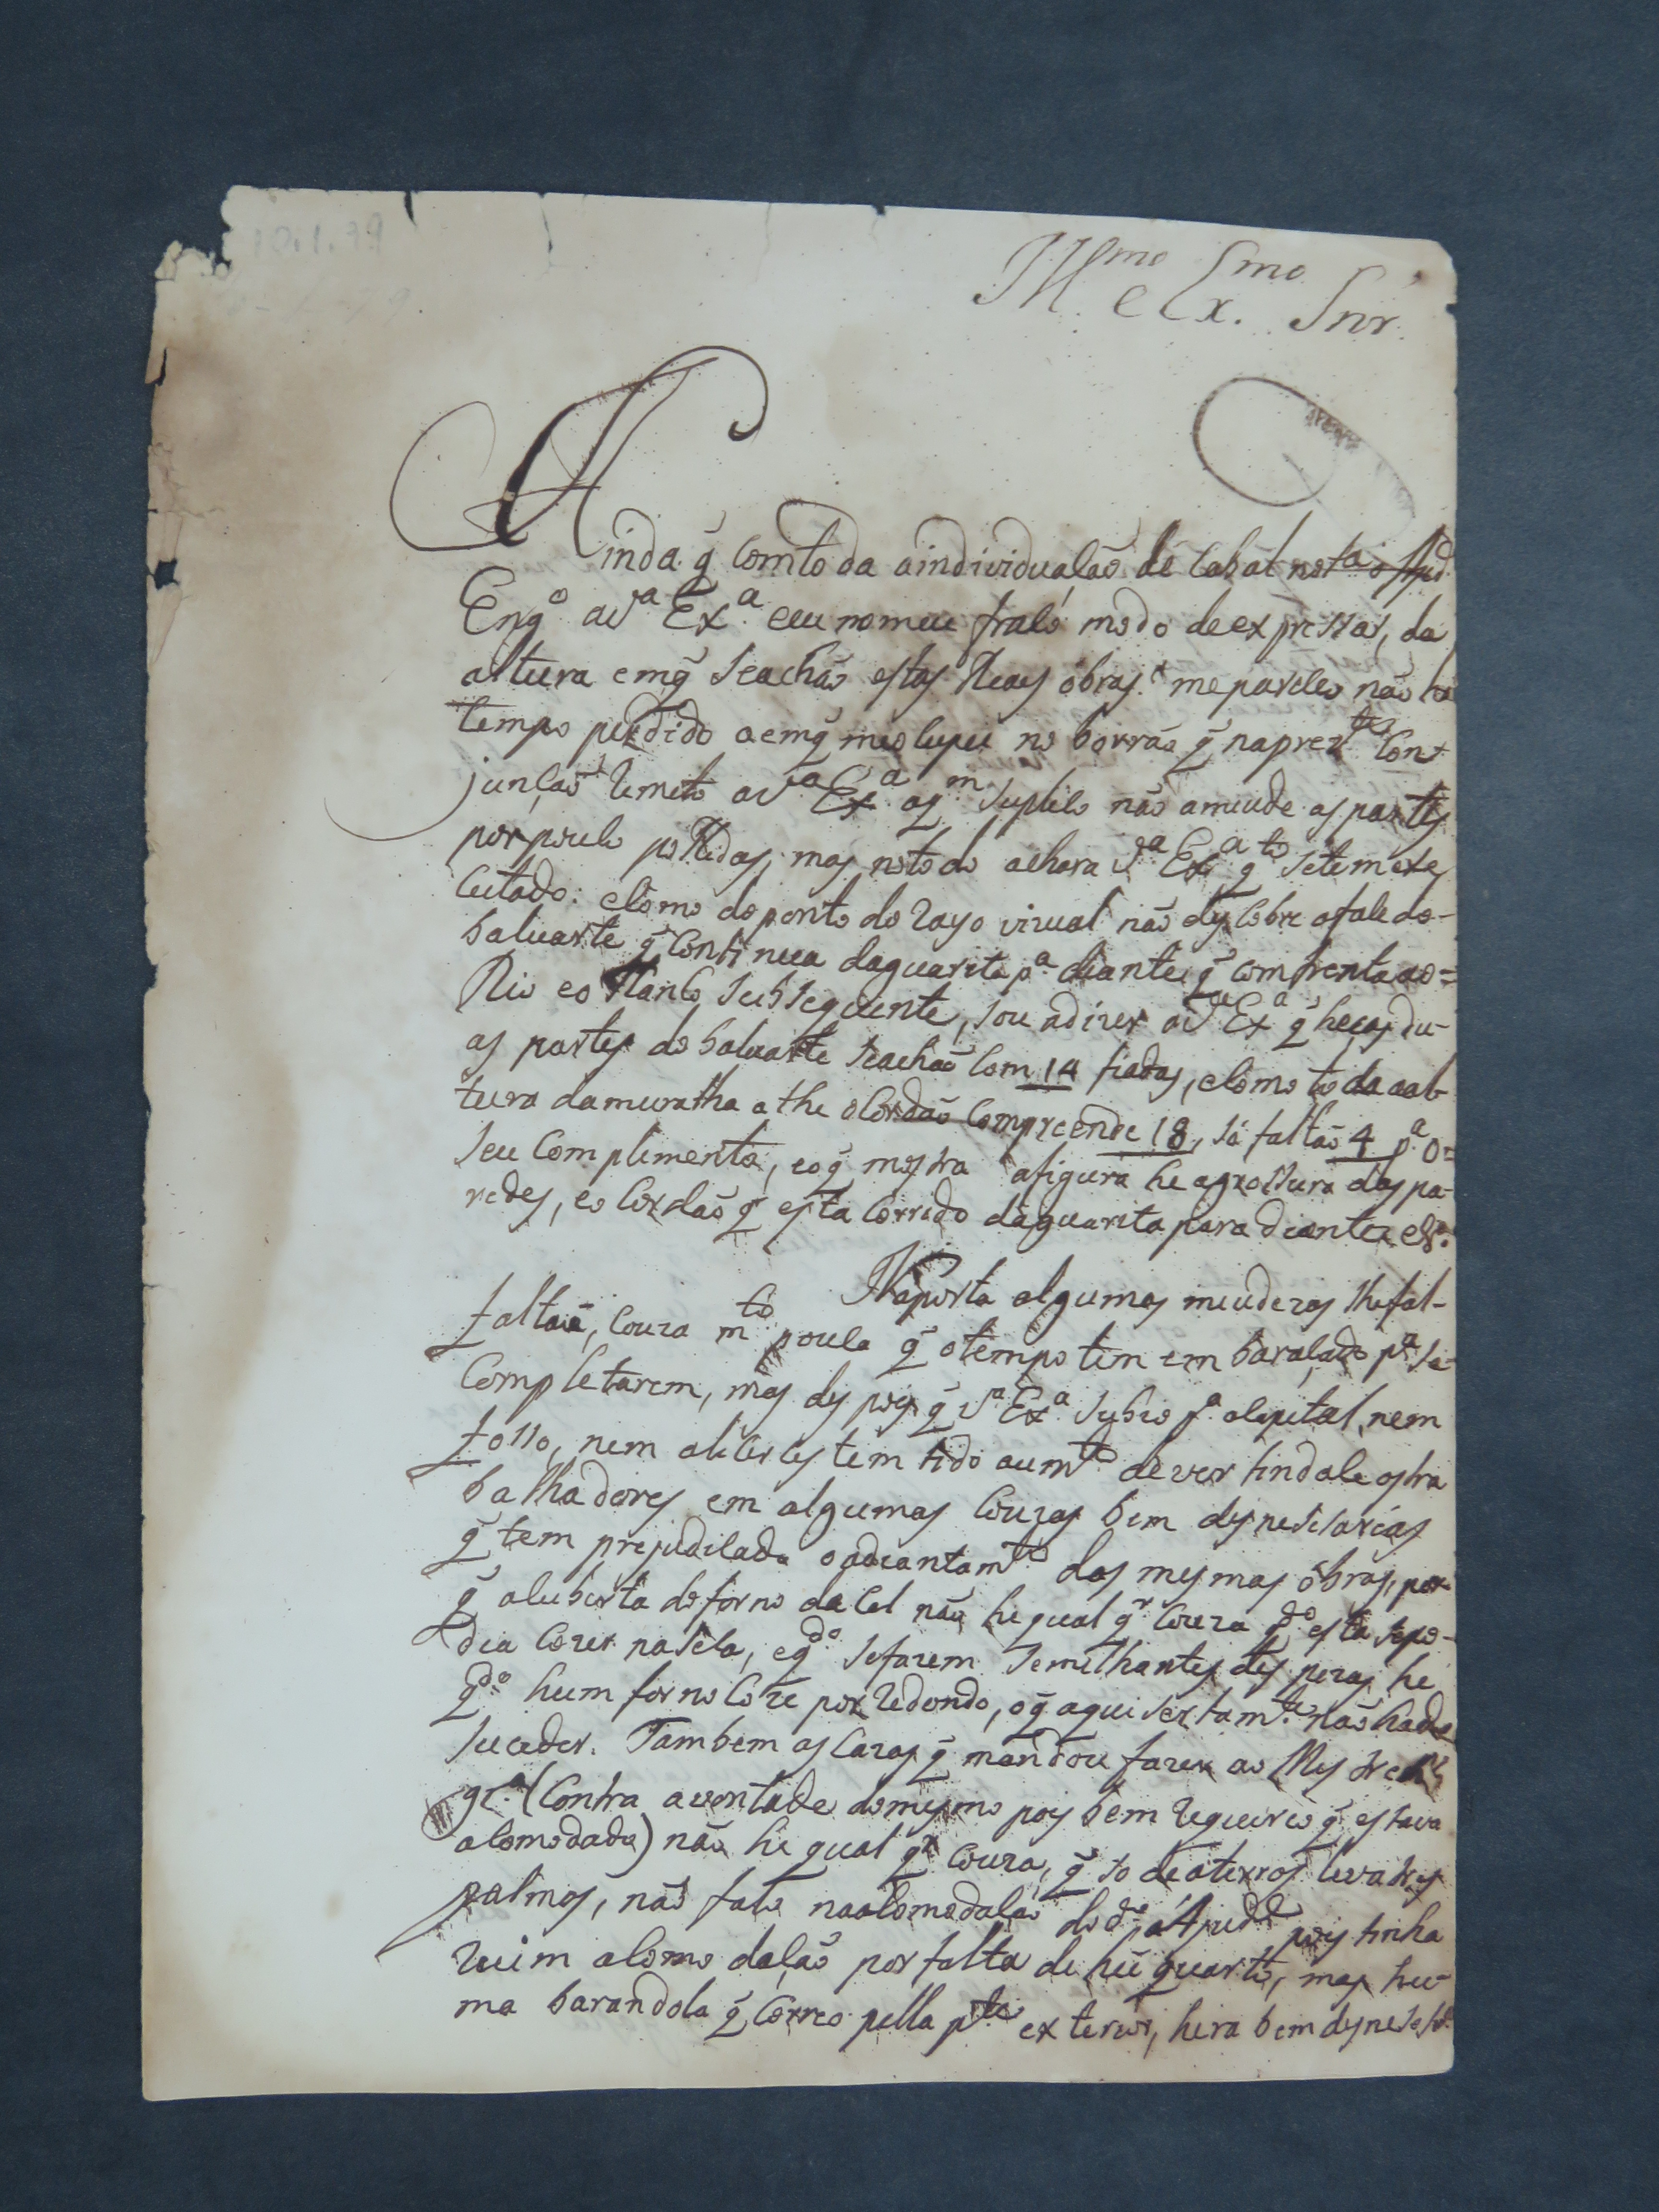 Ill.mo e Ex.mo Snr
Ainda q̃ com toda a individuaçaõ dé cabal nota o Ajud.
Eng.o a V.a Ex.a eeu no meu fraco modo de expressar, da
altura em q̃ se achaõ estas Reaes obras; me pareceo naõ ha
tempo perdido a em q̃ me ocupei no borraõ q̃ na prez.te con
junçaõ remeto a V.a Ex.a a q.m suplico naõ amiude as partes
por pouco polidas, mas no todo achara V.a Ex.a q.to se tem exe
cutado: e como do ponto do rayo vizual naõ descobre a face do-
baluarte q̃ continua daguarita p.a diante q̃ comfrenta ao=
Rio e o flanco subsequente, sou a dizer a V.a Ex.a q̃ heas du-
as partes do baluarte se achaõ com 14 fiadas, e como toda a al-
tura da muralha athe o cordaõ compreende 18, só faltaõ 4 p.a o=
seu complimento, e o q̃ mostra a figura he a grossura das pa-
redes, e o cordaõ q̃ esta corrido daguarita para diante &.
Na porta algumas miudezas lhe fal-
faltaõ, couza m.to pouca q̃ o tempo tem embaraçado p.a se-
completarem, mas despois q̃ V.a Ex.a subio p.a a capital, nem
fosso, nem alicerces tem tido aum.to de ver tindace os tra
balhadores em algumas couzas bem desnesesarias
q̃ tem prejudicado o adiantam.to das mesmas obras, por-
q̃ a cuberta do forno da cal naõ he qual q.r couza q.do esta se po-
dia cozer na seca, e q.do se fazem semilhantes despezas he
q.do hum forno coze por redondo, o q̃ aqui sertam.te naõ hade
suceder. Tambem as cazas q̃ mandou fazer ao Mestre
(Contra a vontade do mesmo pois bem requereo q̃ estava
acomodado) naõ he qual q.r couza, q̃ so de aterros leva tres
palmos, naõ falo na acomodaçaõ do d.o Ajud.e pois tinha
ruim acomodaçaõ por falta de hũ quarto, mas hu-
ma barandola q̃ correo pella p.te exterior, hera bem desneses.